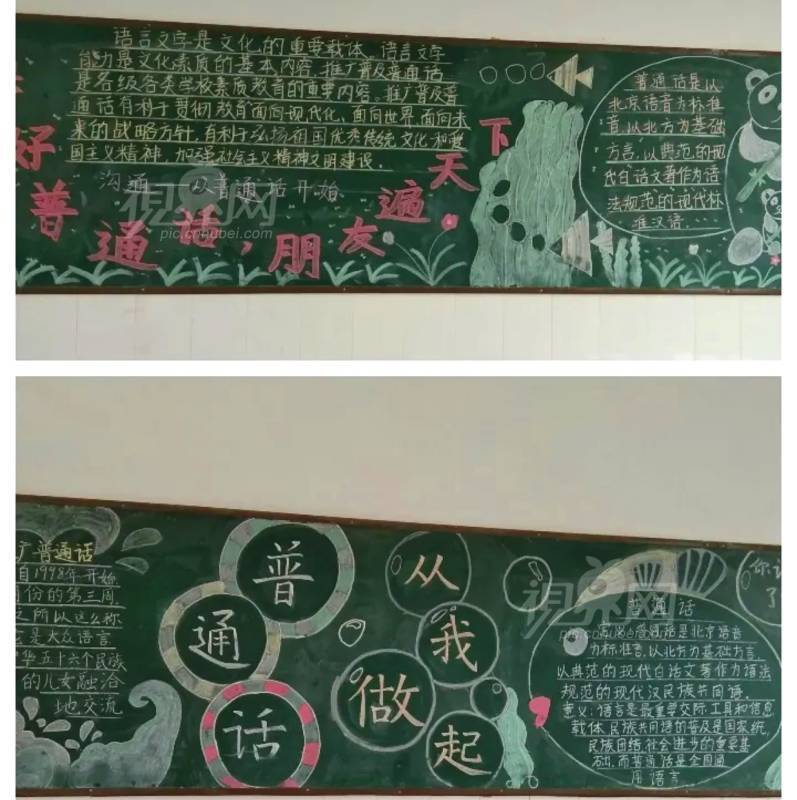 语言文字是文化的重要载体、语言文字
能力是文化素质的基本内容，推广普及普通话
是各级各类学校素质教育的重要内容。推广普及普
通话有利于贯彻教育面向现代化、面向世界、面向未
来的战略方针，有利于弘扬祖国优秀传统文化和爱
国主义精神，加强社会主义精神文明建设。
沟通——从普通话开始
好普通话，朋友遍天下
视界网
pic.cnhubei.com
普通话是以
北京语音为标准
音，以北方为基础
方言，以典范的现
代白话文著作为语
法规范的现代标
准汉语……
广普通话
自1998年开始
月份的第三周
之所以这么称
是大众语言
华五十六个民族
的儿女融洽
地交流
普通话
从我做起
视界网
普通话
是北京语音
为标准音，以北方为基础方言，
以典范的现代白话文著作为语法
规范的现代汉民族共同语。
意义：语言是最重要交际工具和信息
载体，民族共同语的普及是国家统一
民族团结，社会进步的重要基
础，而普通话是全国通
用语言
你
了